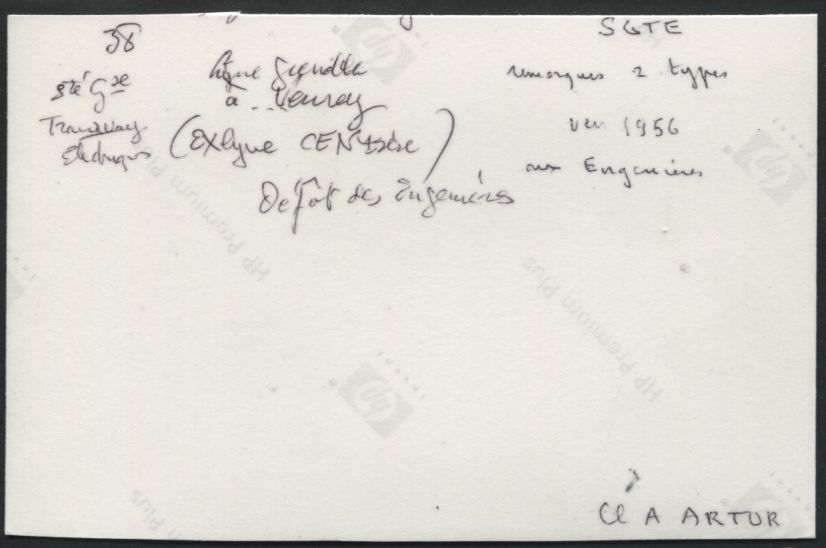 38
Sté Gse
Tramways
Electriques
ligne Grenoble
à Veurey
(Ex ligne CEN Isère)
Depôt des Engenières
SGTE
remorques 2 types
vers 1956
aux Engenières
Cl A ARTUR
HP Premium Plus
HP Premium Plus
Plus
hp
hp
hp
hp